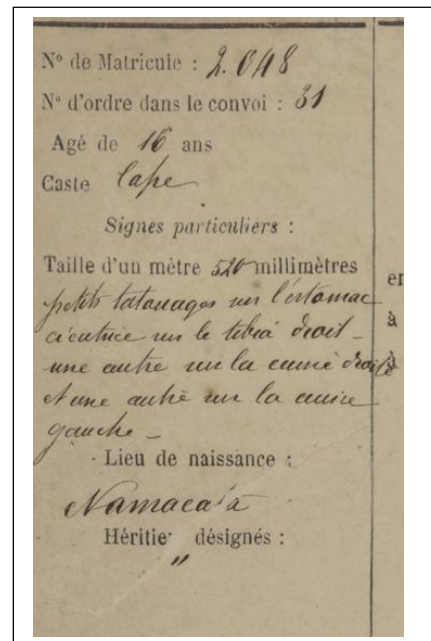 N° de Matricule : 2.048
N° d'ordre dans le convoi : 31
Agé de 16 ans
Caste Cafre
Signes particuliers :
Taille d'un mètre 520 millimètres
petits tatouages sur l'estomac
cicatrice sur le tibia droit -
une autre sur la cuisse droite
et une autre sur la cuisse
gauche -
Lieu de naissance :
Namacata
Héritier désignés :
"
er
à
à